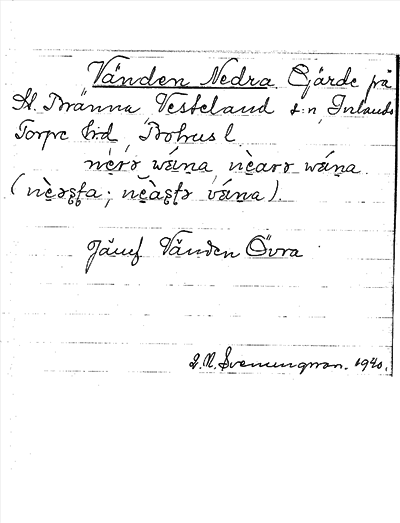 Vänden Nedra Gärde på
St. Bränna Vesteland s:n, Inlands
Torpe hrd, Bohus l.
nèrə wána, nèarə wána.
(nèəʂʈa; nèàʂʈə vána).
Jämf Vänden Övra
J. N. Svenningsson. 1940.